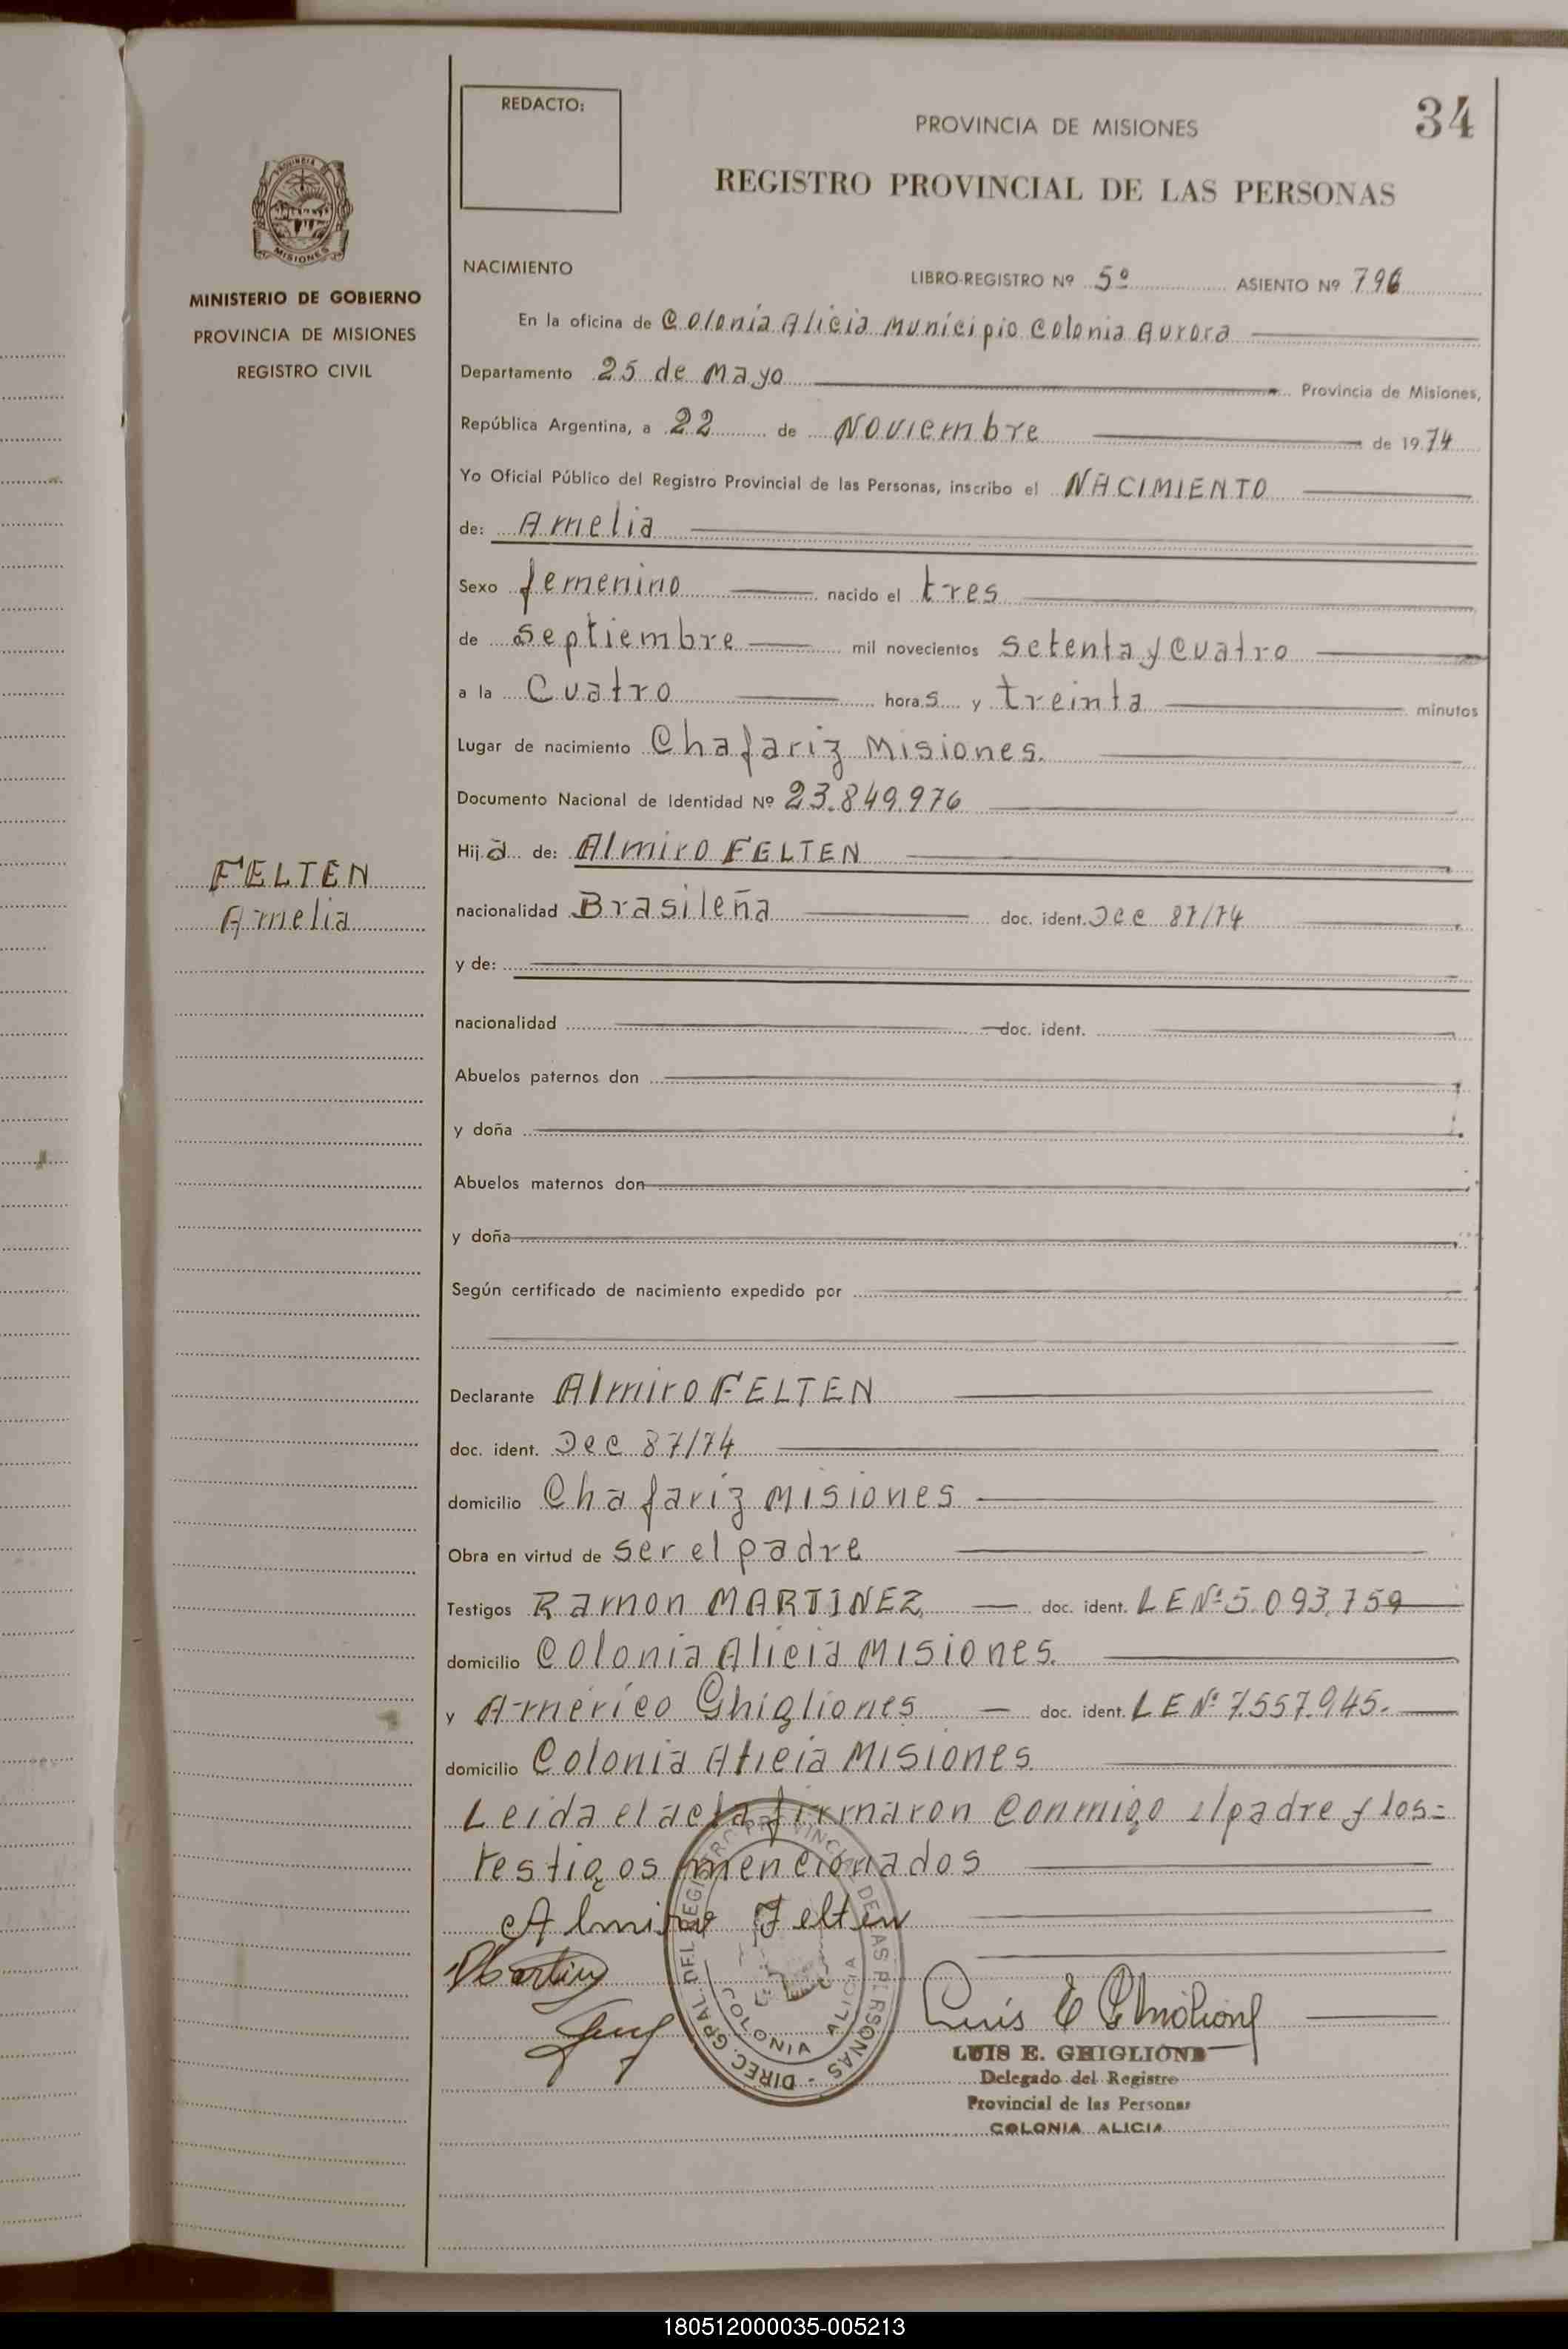 34
REDACTO:
PROVINCIA DE MISIONES
REGISTRO PROVINCIAL DE LAS PERSONAS
MISIONES
MINISTERIO DE GOBIERNO
PROVINCIA DE MISIONES
REGISTRO CIVIL
NACIMIENTO LIBRO-REGISTRO Nº 5º ASIENTO Nº 796
En la oficina de Colonia Alicia Municipio Colonia Aurora
Departamento 25 de Mayo Provincia de Misiones,
República Argentina, a 22 de Noviembre de 1974
Yo Oficial Público del Registro Provincial de las Personas, inscribo el NACIMIENTO
de: Amelia
Sexo femenino nacido el tres
de septiembre mil novecientos setenta y cuatro
a la Cuatro horas y treinta minutos
Lugar de nacimiento Chafariz Misiones.
Documento Nacional de Identidad Nº 23.849.976
Hija de: Almiro FELTEN
FELTEN
Amelia
nacionalidad Brasileña doc. ident. Dec 87/74
y de:
nacionalidad doc. ident.
Abuelos paternos don
y doña
Abuelos maternos don
y doña
Según certificado de nacimiento expedido por
Declarante Almiro FELTEN
doc. ident. Dec 87/74
domicilio Chafariz Misiones
Obra en virtud de ser el padre
Testigos Ramon MARTINEZ, doc. ident. LE Nº 5.093.759
domicilio Colonia Alicia Misiones.
y Américo Ghigliones doc. ident. LE Nº 7.557.945.
domicilio Colonia Alicia Misiones.
Leida el acta firmaron conmigo el padre y los=
testigos mencionados
Almiro Felten
DIREC. GPAL. DEL REGISTRO PROVINCIAL DE LAS PERSONAS -
COLONIA ALICIA
LUIS E. GHIGLIONE
Delegado del Registro
Provincial de las Personas
COLONIA ALICIA
180512000035-005213